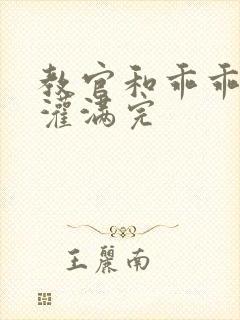 教官和乖乖
灌满完
王麗南